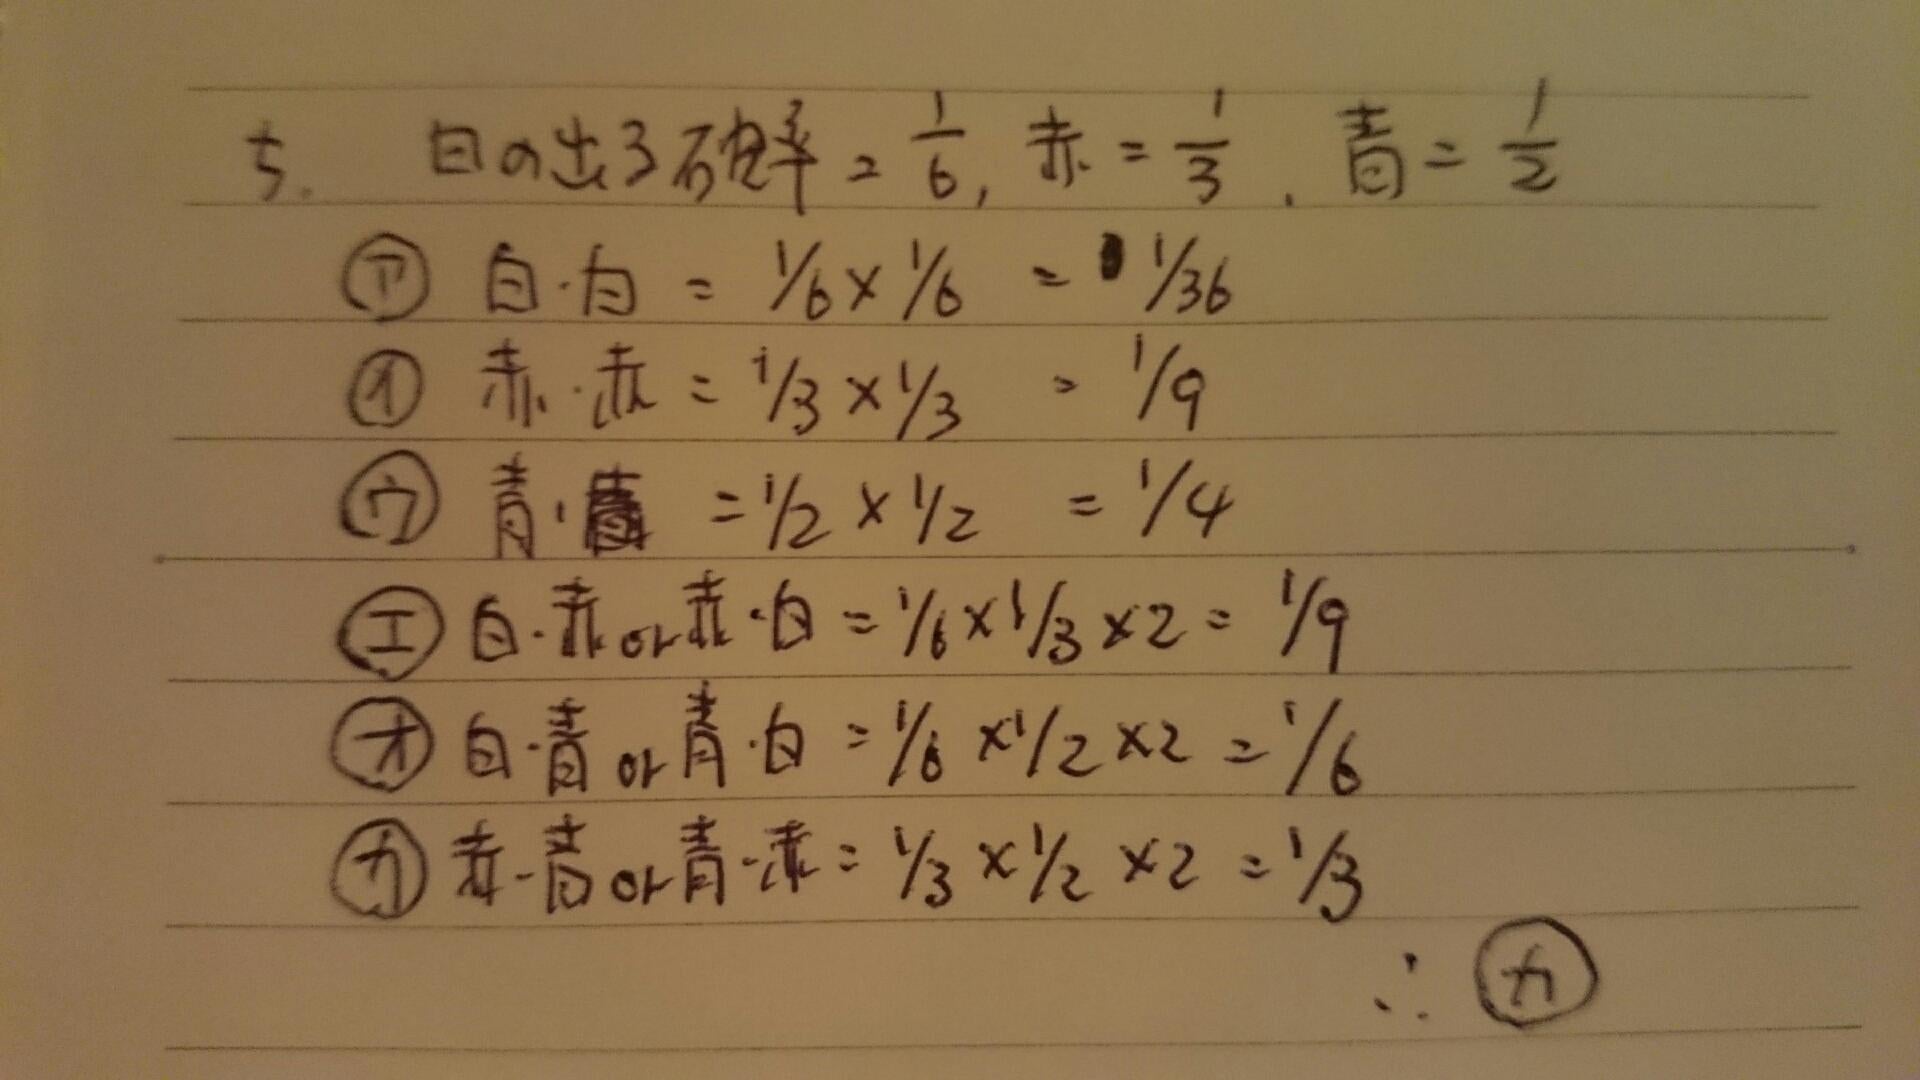 5. 白の出る確率 = 1/6, 赤 = 1/3, 青 = 1/2
㋐ 白・白 = 1/6 × 1/6 = 1/36
㋑ 赤・赤 = 1/3 × 1/3 = 1/9
㋒ 青・青 = 1/2 × 1/2 = 1/4
㋓ 白・赤 or 赤・白 = 1/6 × 1/3 × 2 = 1/9
㋔ 白・青 or 青・白 = 1/6 × 1/2 × 2 = 1/6
㋕ 赤・青 or 青・赤 = 1/3 × 1/2 × 2 = 1/3
∴ ㋕